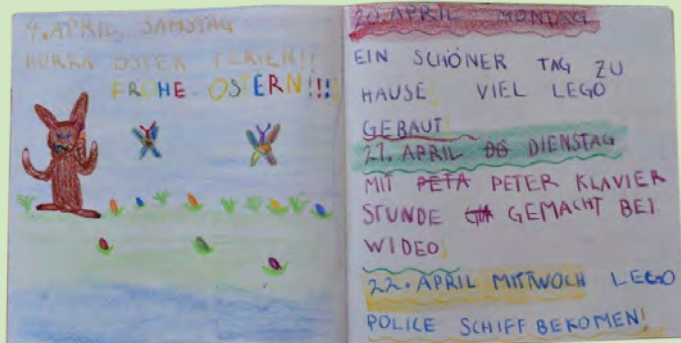 4. APRIL SAMSTAG
HURRA OSTER FERIEN!!
FROHE OSTERN!!!!
20. APRIL MONTAG
EIN SCHÖNER TAG ZU
HAUSE! VIEL LEGO
GEBAUT!
21. APRIL DIENSTAG
MIT PETA PETER KLAVIER
STUNDE GEMACHT BEI
WIDEO!
22. APRIL MITTWOCH LEGO
POLICE SCHIFF BEKOMEN!